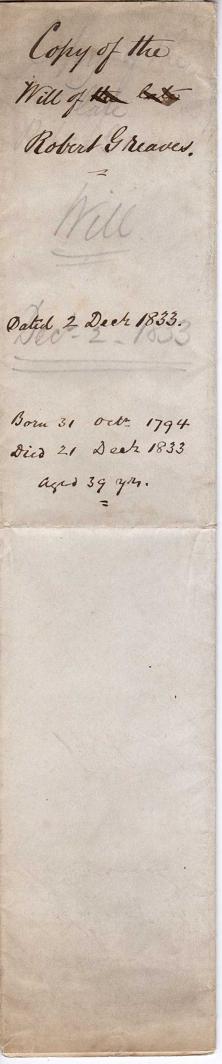 Copy of the
Will of the late
Robert Greaves.
Will
Dated 2 Decr 1833.
Decr 2 - 1833
Born 31 Octr 1794
Died 21 Decr 1833
aged 39 yrs.